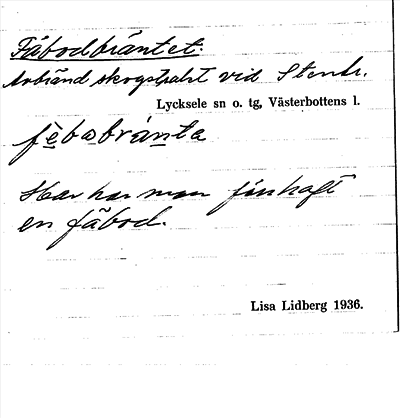 Fäbodbräntet.
Avbränd skogstrakt vid Stentr.
Lycksele sn o. tg, Västerbottens l.
fèbobránta
Här har man förr haft
en fäbod.
Lisa Lidberg 1936.